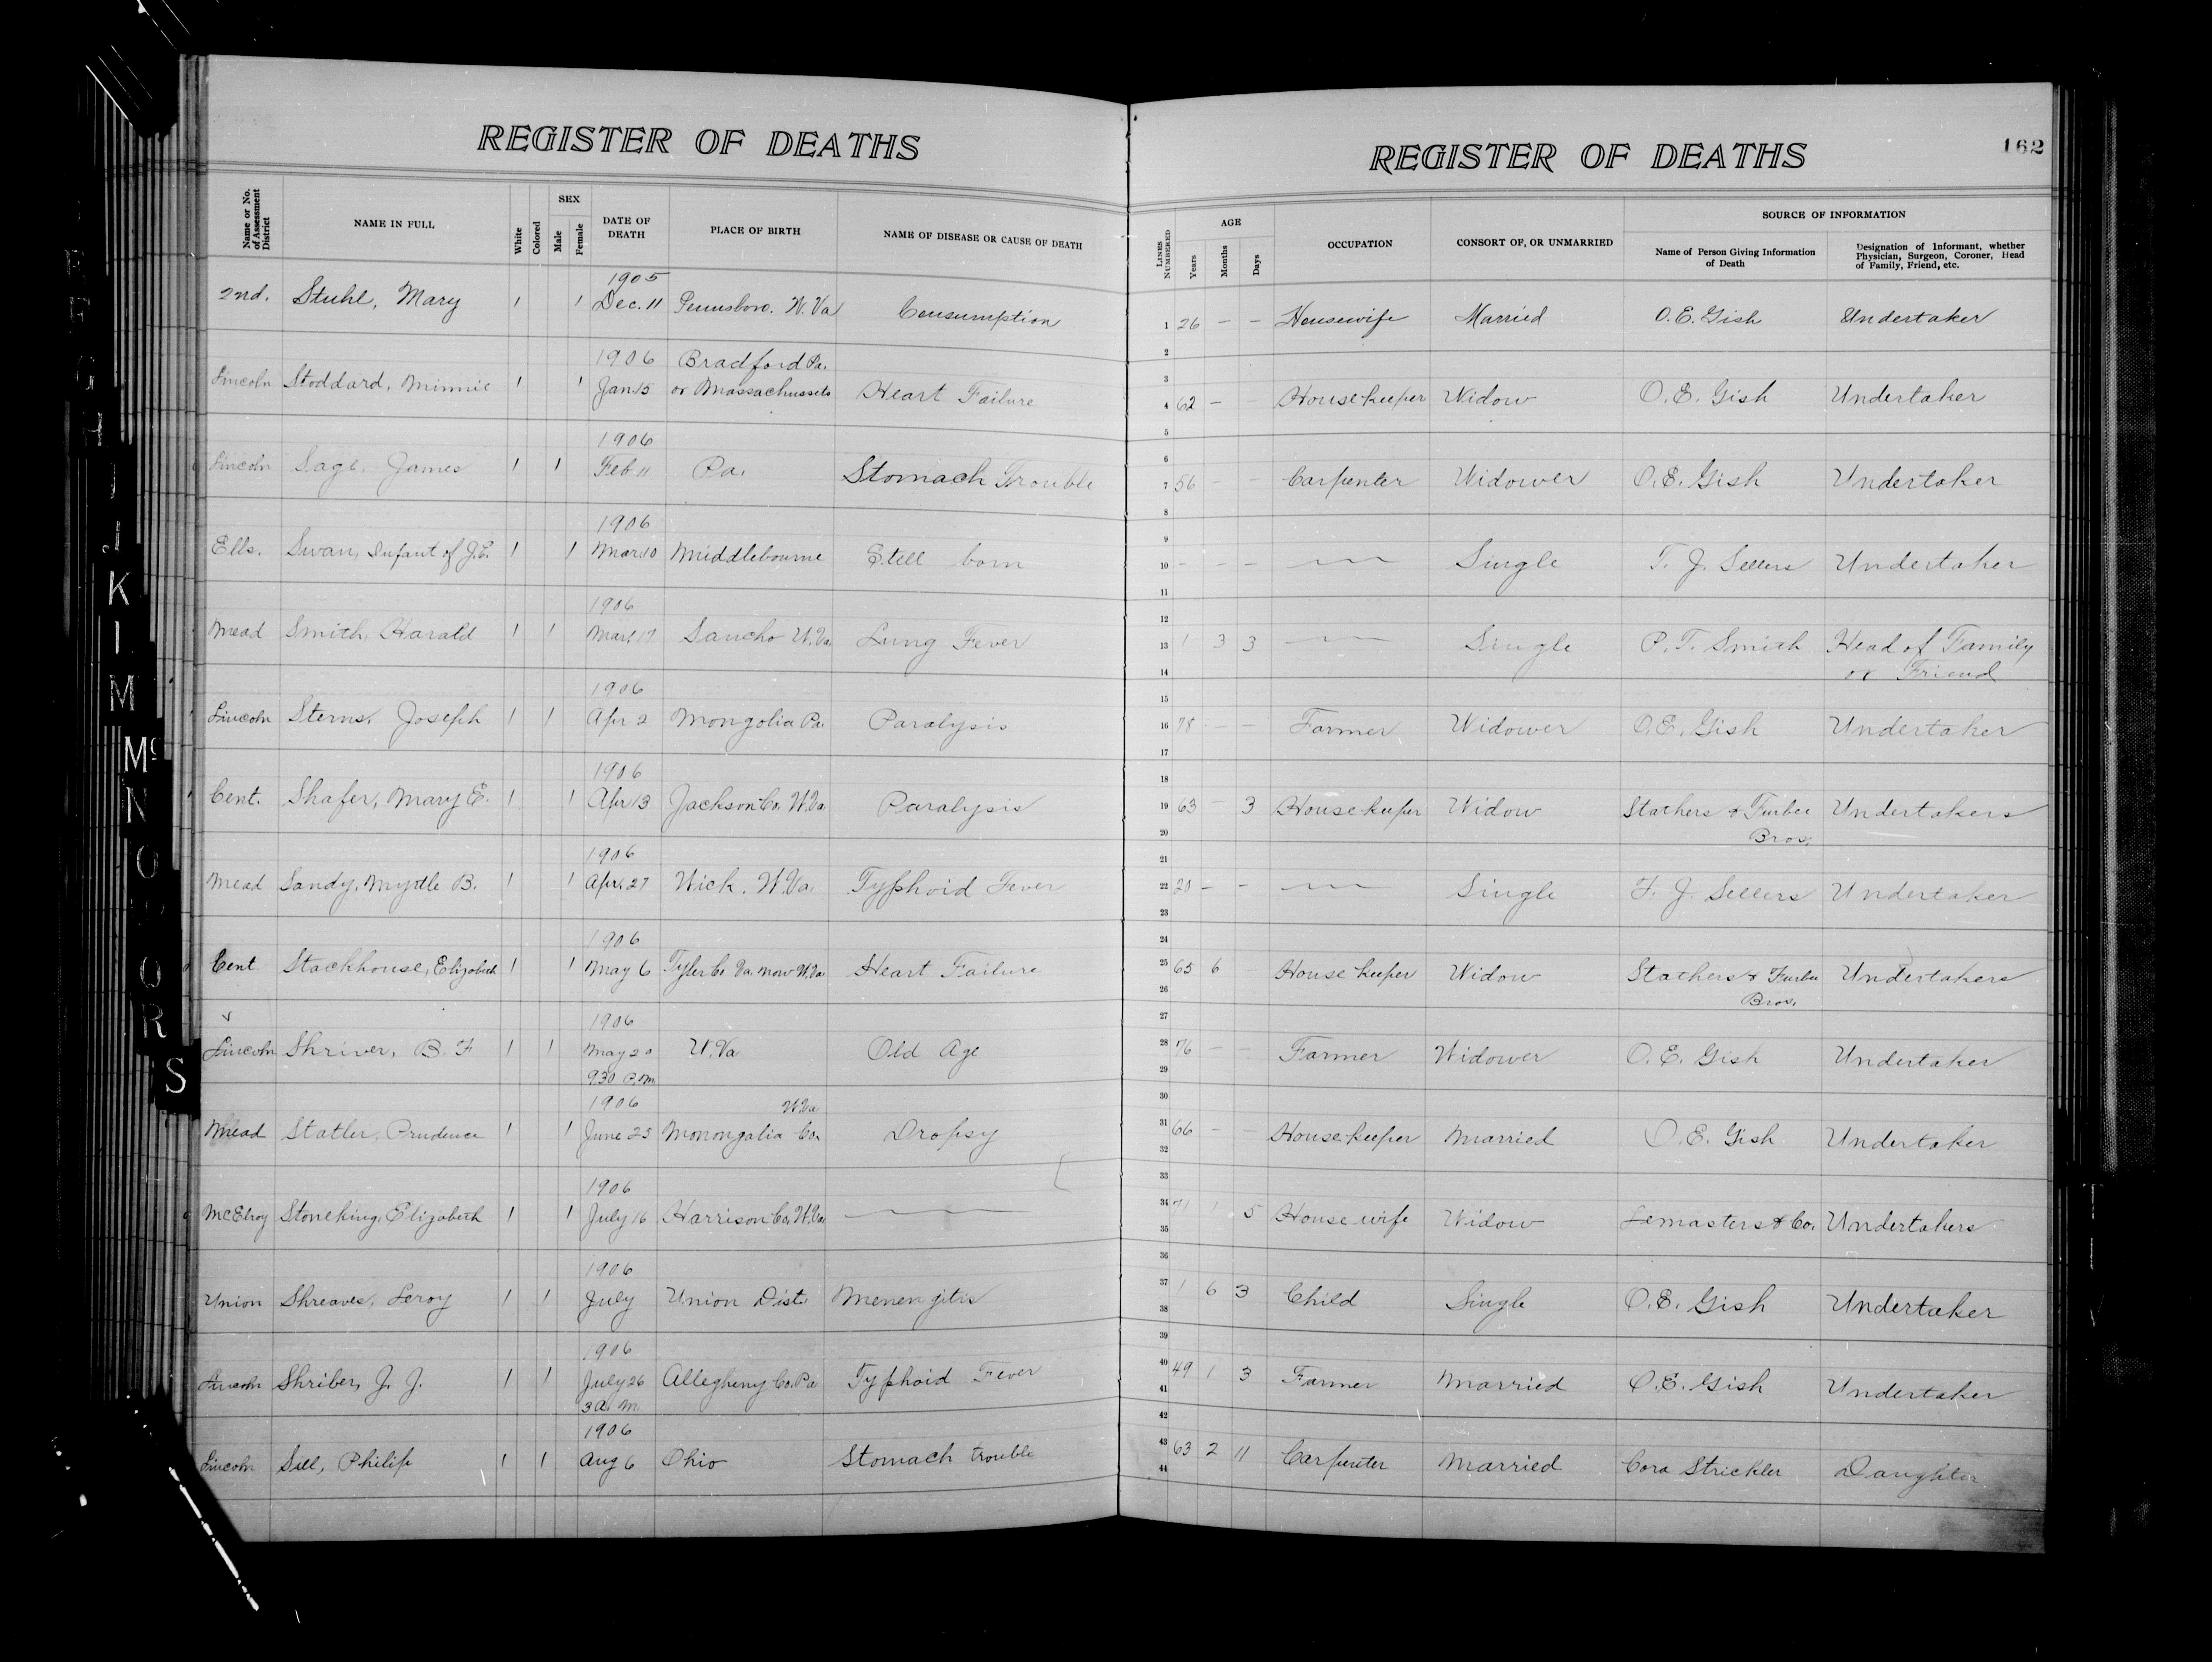 REGISTER OF DEATHS
REGISTER OF DEATHS
162
Name or No. of Assessment District
NAME IN FULL
White
Colored
SEX
Male
Female
DATE OF DEATH
PLACE OF BIRTH
NAME OF DISEASE OR CAUSE OF DEATH
LINES NUMBERED
AGE
Years
Months
Days
OCCUPATION
CONSORT OF, OR UNMARRIED
SOURCE OF INFORMATION
Name of Person Giving Information of Death
Designation of Informant, whether Physician, Surgeon, Coroner, Head of Family, Friend, etc.
1905
2nd. Stuhl, Mary 1 1 Dec. 11 Pennsboro. W. Va Consumption 1 26 – – Housewife Married O. E. Gish Undertaker
2
1906 Bradford Pa. 3
Lincoln Stoddard, Minnie 1 1 Jan. 15 or Massachussets Heart Failure 4 62 – – Housekeeper Widow O. E. Gish Undertaker
5
1906 6
Lincoln Sage, James 1 1 Feb 11 Pa. Stomach Trouble 7 56 – – Carpenter Widower O. E. Gish Undertaker
8
1906 9
Ells. Swan, Infant of J. E. 1 1 Mar. 10 Middlebourne Still born 10 – – – Single T. J. Sellers Undertaker
11
1906 12
Mead Smith, Harald 1 1 Mar. 17 Sancho W. Va. Lung Fever 13 1 3 3 Single P. T. Smith Head of Family
14 or Friend
1906 15
Lincoln Sterns, Joseph 1 1 Apr 2 Mongolia Pa. Paralysis 16 78 – – Farmer Widower O. E. Gish Undertaker
17
1906 18
Cent. Shafer, Mary E. 1 1 Apr 13 Jackson Co. W. Va. Paralysis 19 63 – 3 Housekeeper Widow Stathers & Furbee Undertakers
20 Bros.
1906 21
Mead Sandy, Myrtle B. 1 1 Apr. 27 Wick. W. Va. Typhoid Fever 22 20 – – Single T. J. Sellers Undertaker
23
1906 24
Cent Stackhouse, Elizabeth 1 1 May 6 Tyler Co Va. now W. Va. Heart Failure 25 65 6 – Housekeeper Widow Stathers & Furbee Undertakers
26 Bros.
1906 27
Lincoln Shriver, B. F 1 1 May 20 W. Va Old Age 28 76 – – Farmer Widower O. E. Gish Undertaker
9.30 P. M. 29
1906 W. Va 30
Mead Statler, Prudence 1 1 June 25 Monongalia Co. Dropsy 31 66 – – Housekeeper Married O. E. Gish Undertaker
32
33
1906 34
McElroy Stoneking, Elizabeth 1 1 July 16 Harrison Co. W. Va. 71 1 5 House wife Widow Lemasters & Co. Undertakers
35
36
1906 37
Union Shreaves, Leroy 1 1 July Union Dist. Menengitis 1 6 3 Child Single O. E. Gish Undertaker
38
39
1906 40
Lincoln Shriber, J. J. 1 1 July 26 Allegheny Co. Pa Typhoid Fever 49 1 3 Farmer Married O. E. Gish Undertaker
3 A. M. 41
42
1906 43
Lincoln Sill, Philip 1 1 Aug 6 Ohio Stomach trouble 63 2 11 Carpenter Married Cora Strickler Daughter
44
K
L
M
Mc
N
O
R
S